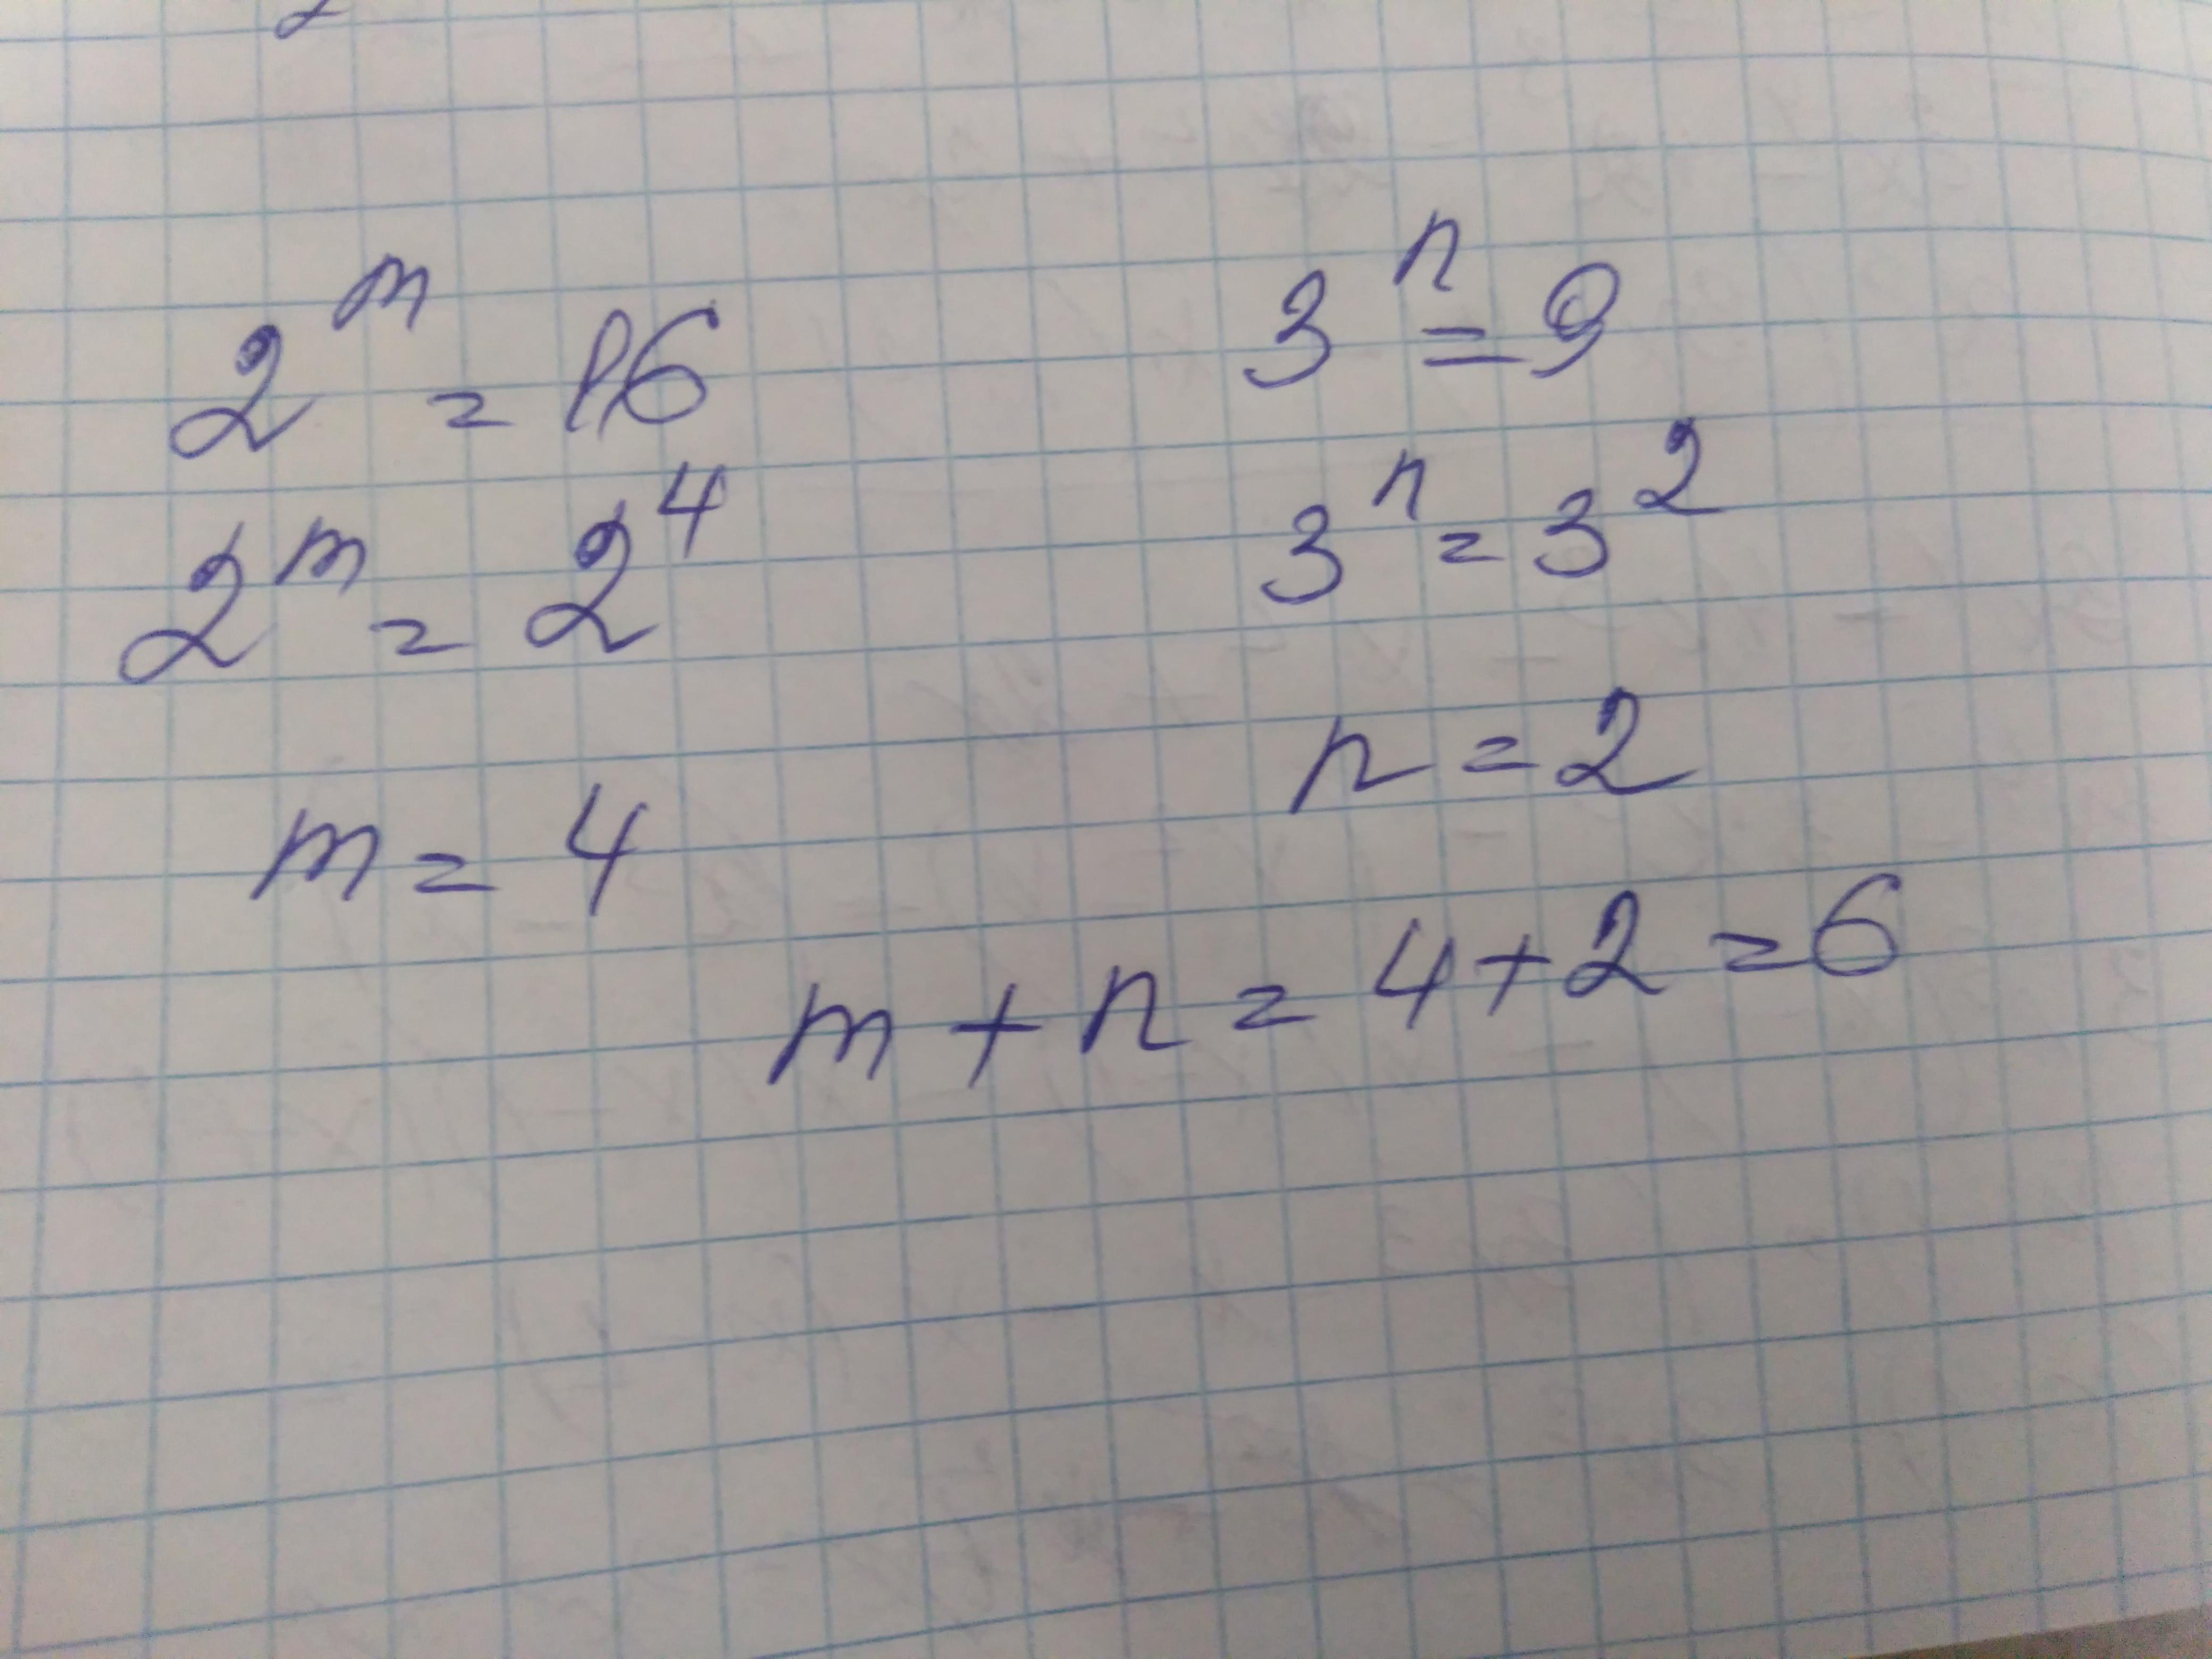 2^m = 16
2^m = 2^4
m = 4
3^n = 9
3^n = 3^2
n = 2
m + n = 4 + 2 = 6